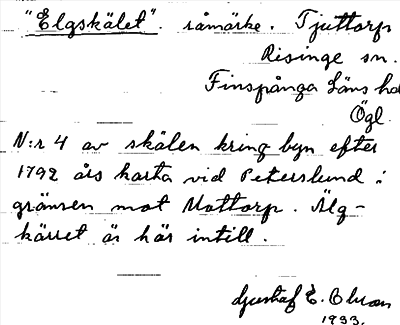 "Elgskälet". råmärke. Tjuttorp
Risinge sn.
Finspånga Läns hd
Ögl.
N:r 4 av skälen kring byn efter
1792 års karta vid Peterslund i
gränsen mot Mattorp. Älg-
kärret är här intill.
Gustaf E. Olsson
1933.